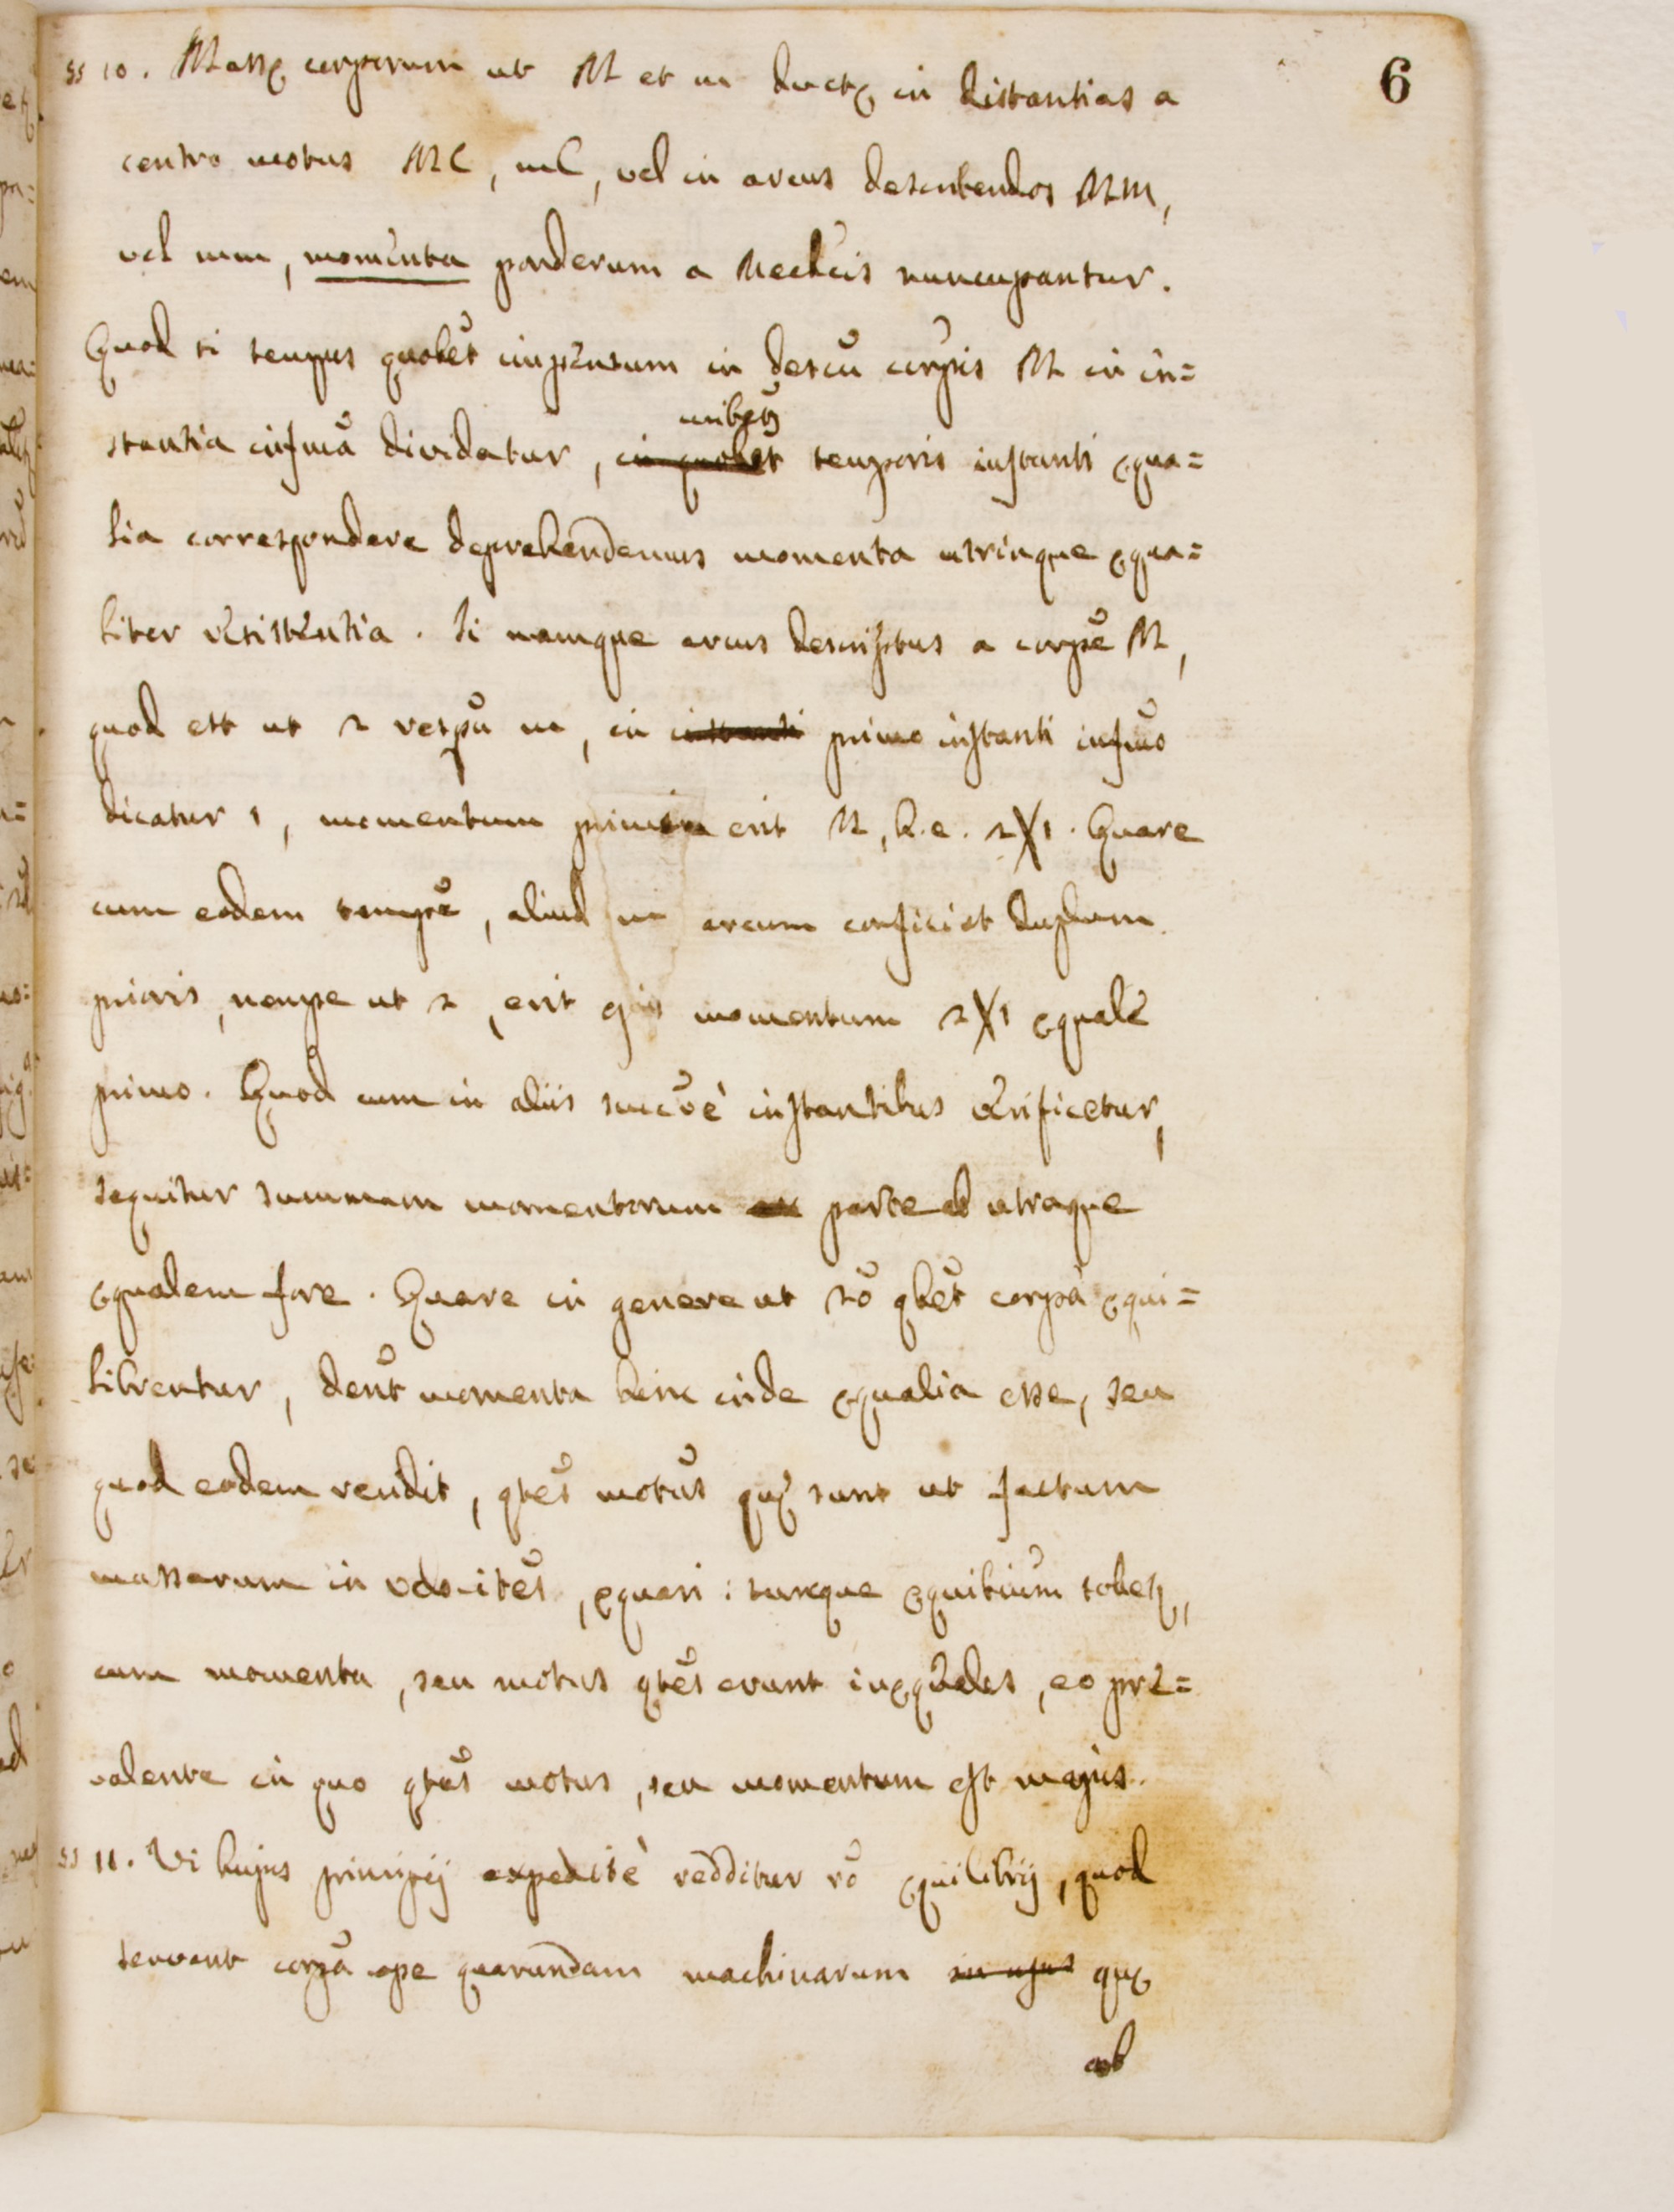 6
§§ 10. Massę corporum ut M et m ductę in distantias a
centro motus MC, mC, vel in arcus describendos MM,
vel mm, momenta ponderum a Mechcis nuncupantur.
Quod si tempus quodlet impensum in descũ corpis M in in=
stantia infima dividatur, in quolet temporis instanti ęqua=
lia correspondere deprehendemus momenta utrinque ęqua=
liter resistentia. Si namque arcus descriptus a corpe M,
quod est ut 2 respũ m, in instanti primo instanti infimo
dicatur 1, momentum erit M, h.e. 2X1. Quare
cum eodem tempre, aliud m arcum conficiet duplum
prioris, nempe ut 2, erit ejus momentum 2X1 ęquale
primo. Quod cum in aliis succvè instantibus verificetur,
sequitur summam momentorum parte ab utraque
ęqualem fore. Quare in genere ut 2o qlet corpa ęqui=
librentur, dent momenta hinc inde ęqualia esse, seu
quod eodem reudit, qtes motus quę sunt ut factum
massarum in velocites, ęquari: tuncque ęquibrium tolletr,
cum momenta, seu motus qtes erunt inęquales, eo prę=
valente in quo qtas motus, seu momentum est majus.
§§ 11. Vi hujus principij expeditè redditur rõ ęquilibrij, quod
servant corpa ope quarundam machinarum in usus quę
ab